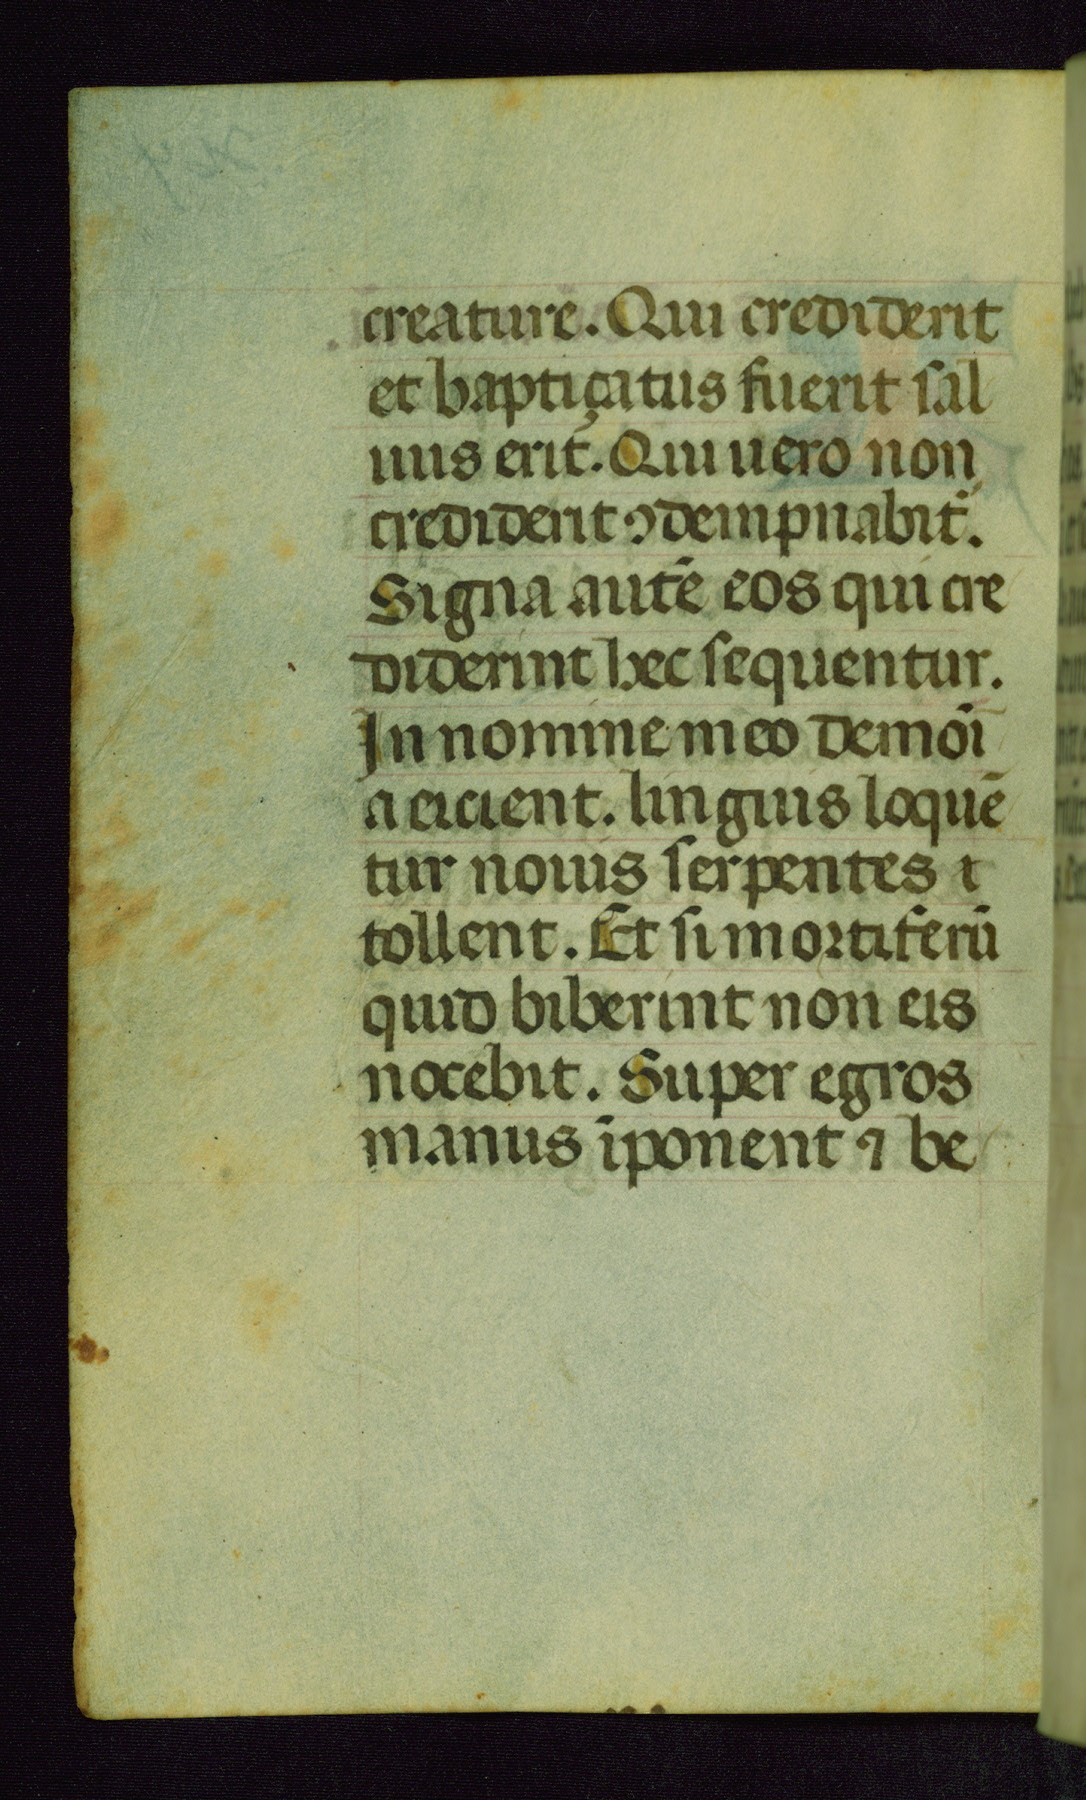 creature. Qui crediderit
et baptiçatus fuerit sal
uus erit. Qui uero non
crediderit ꝯdempnabit᷑.
Signa autē eos qui cre
diderint hec sequentur.
In nomine meo demoı̄
a eicient. linguis loquē
tur nouis serpentes t
tollent. Et si mortiferū
quid biberint non eis
nocebit. Super egros
manus īponent ⁊ be